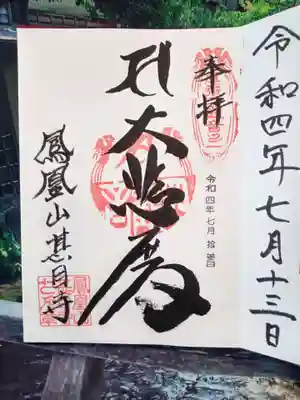 令和四年七月十三日
奉拝
令和四年七月拾参日
大悲
鳳凰山甚目寺